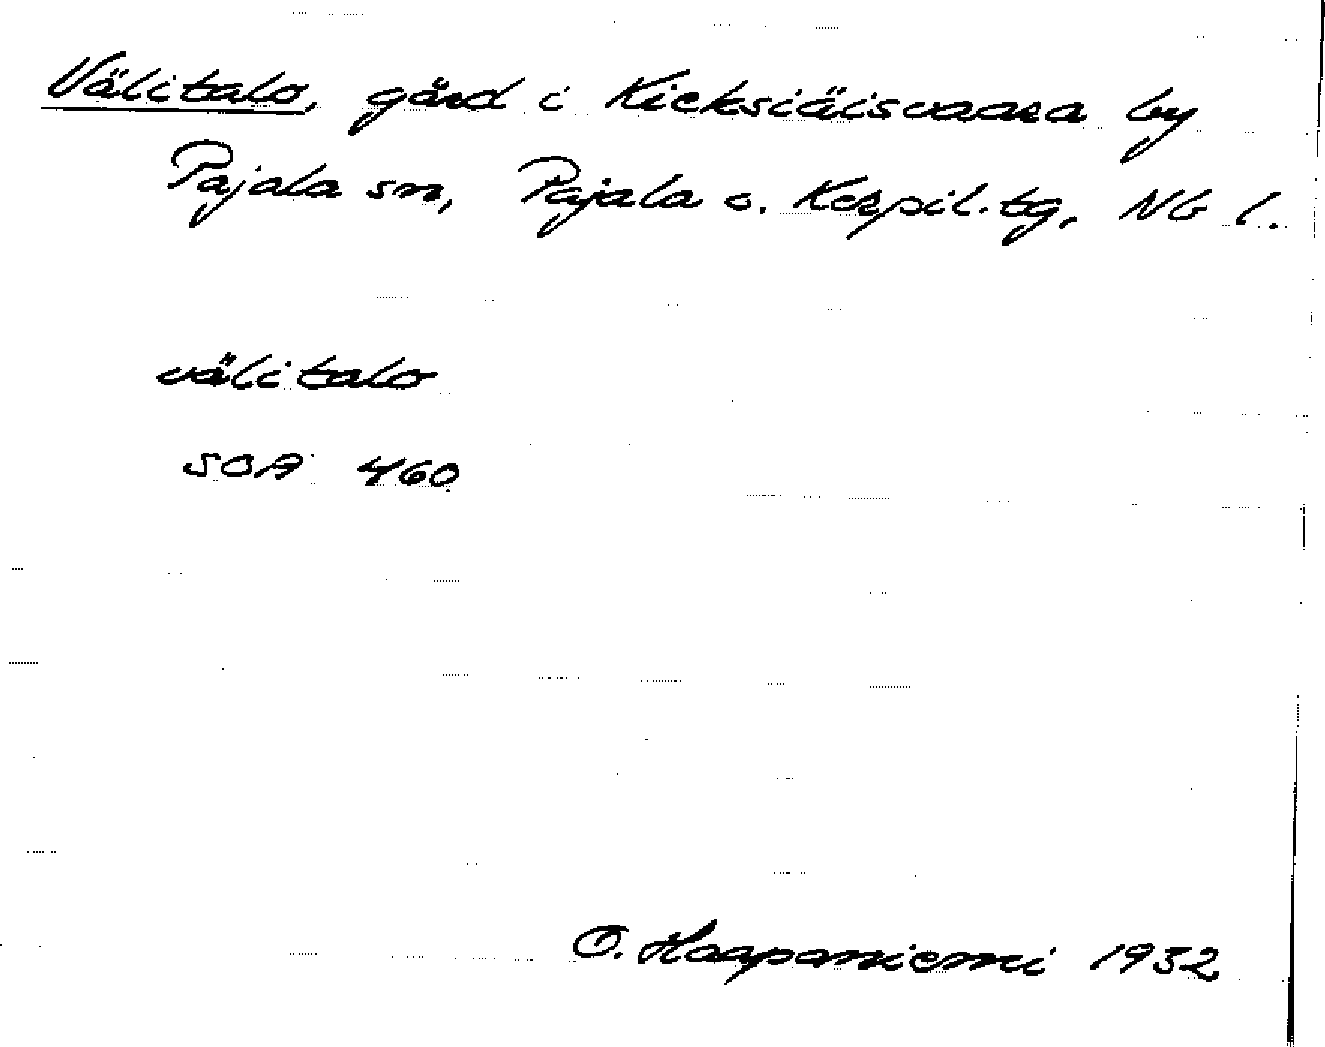 Välitalo, gård i Kieksiäisvaara by
Pajala sn, Pajala o. Korpil. tg, Nb l.
välitalo
SOA 460
O. Haapaniemi 1932